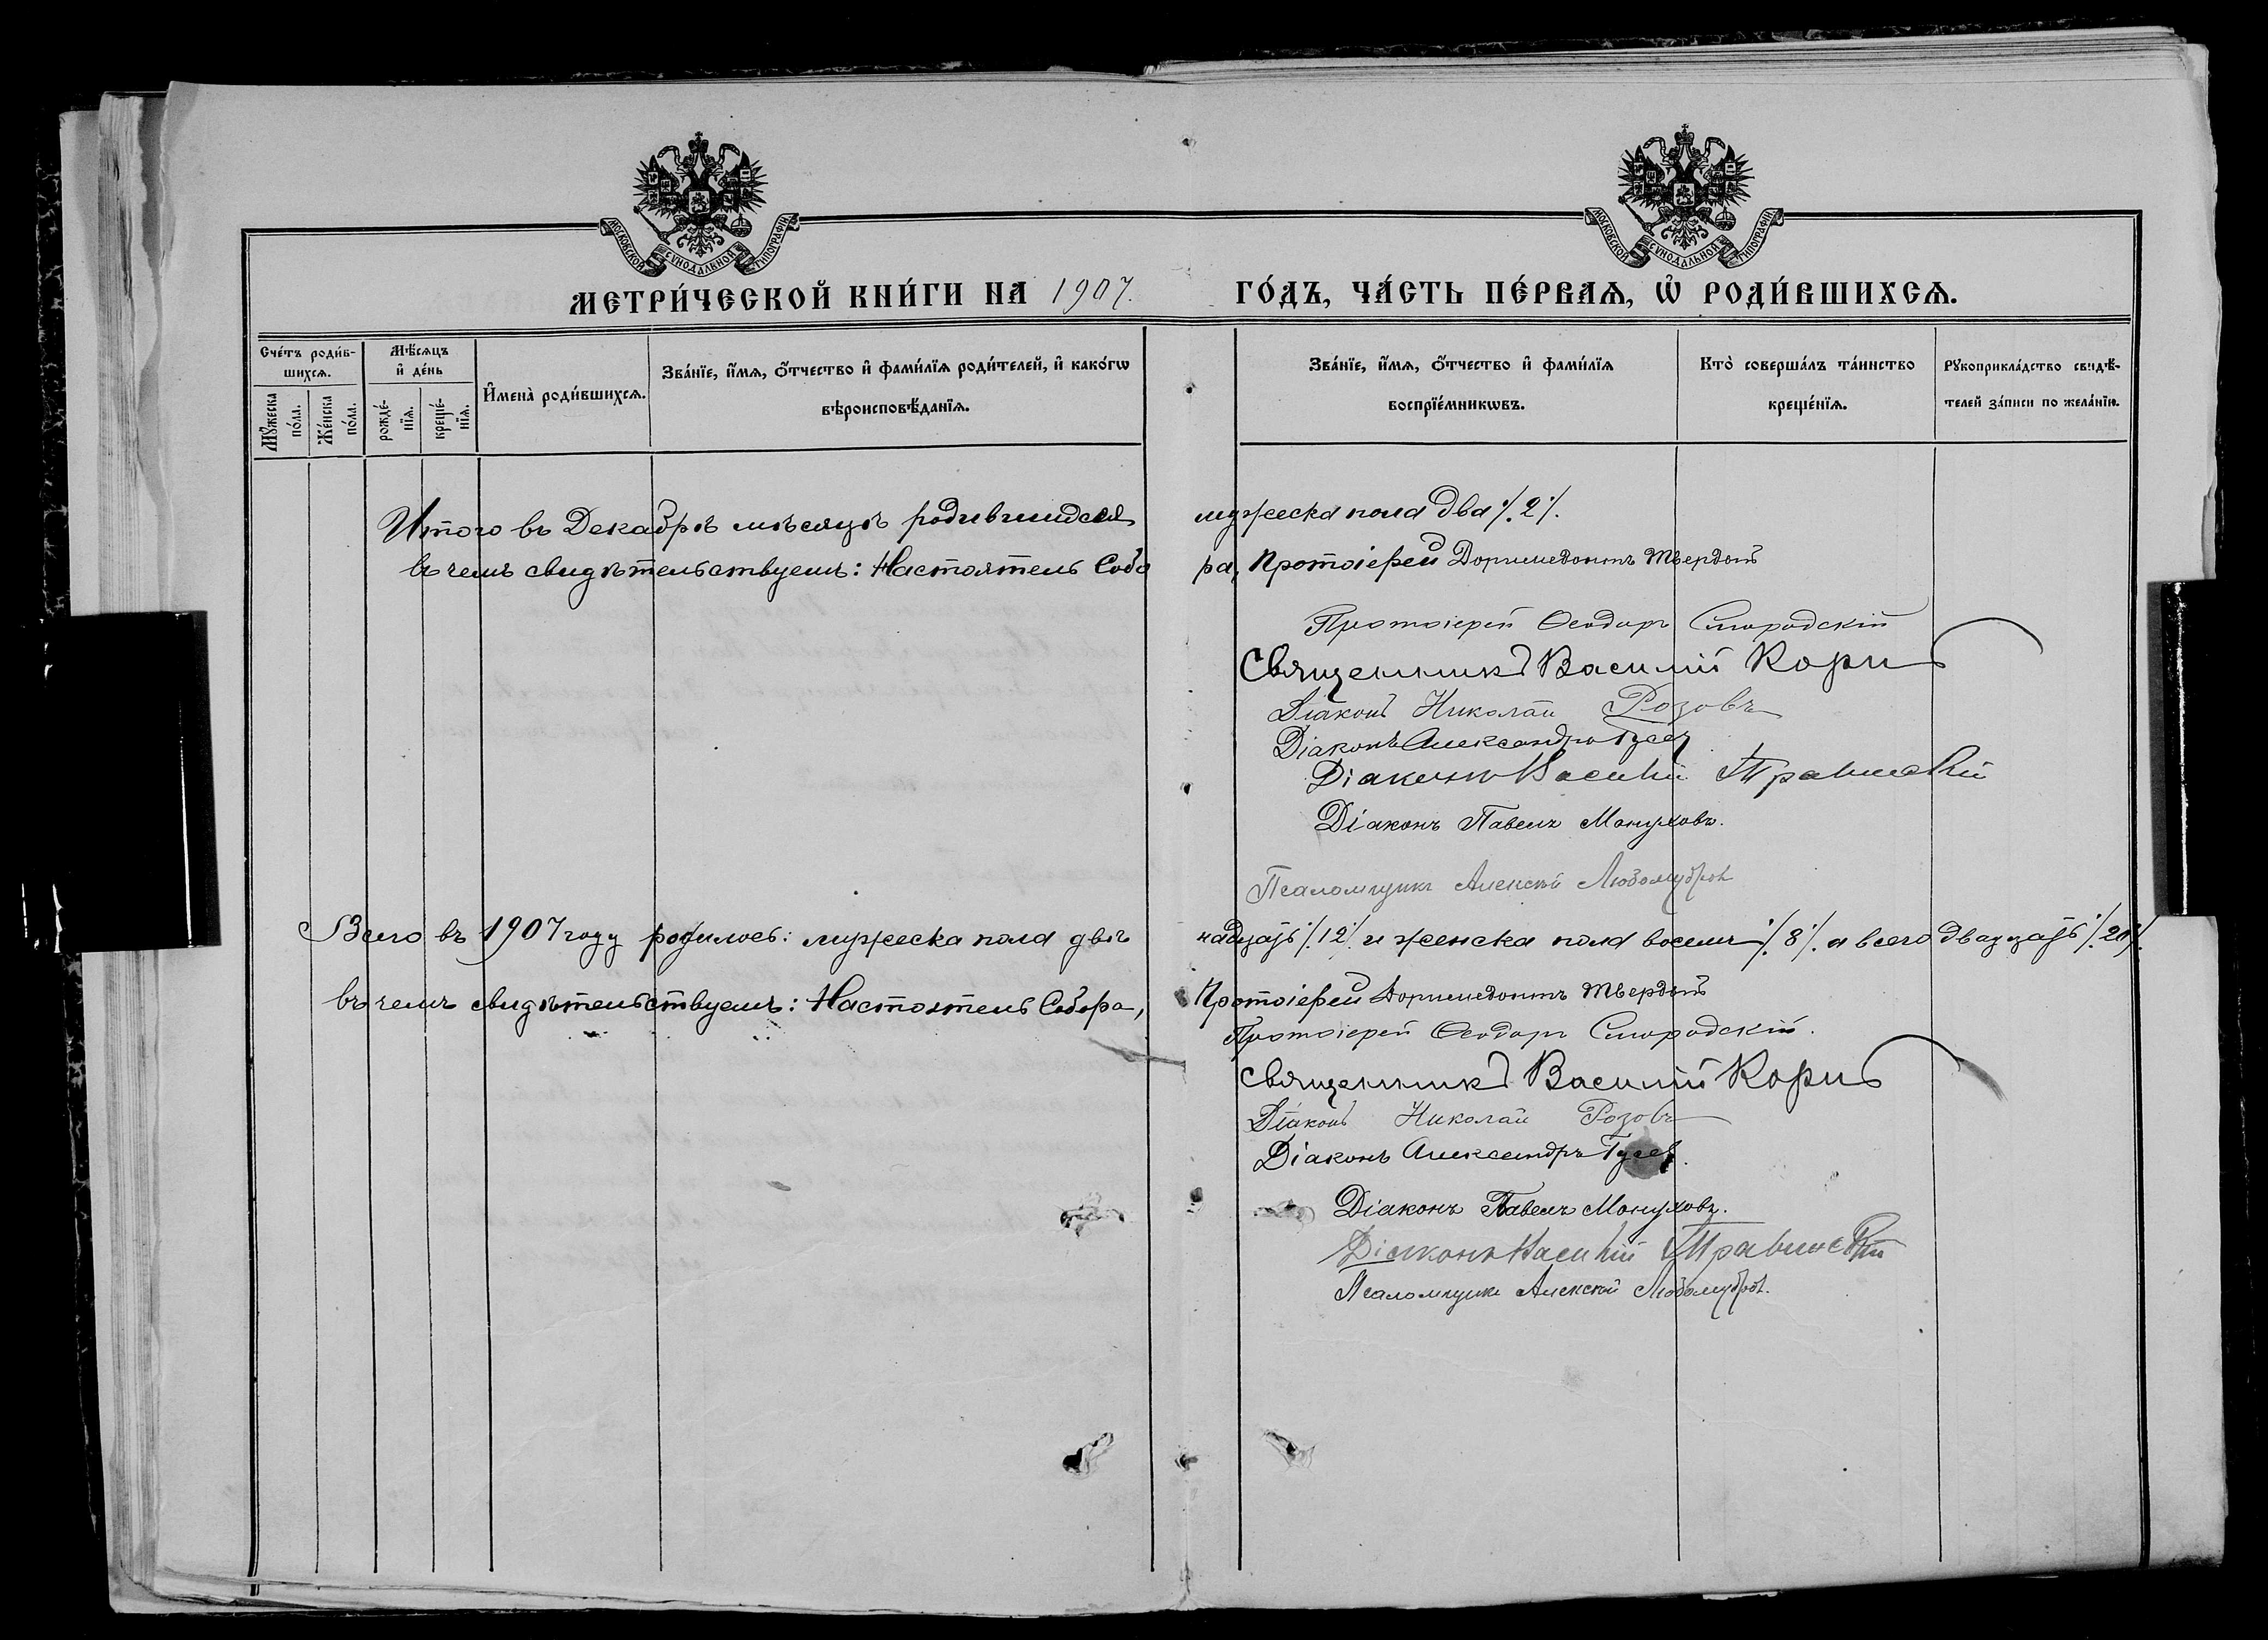 МОСКОВСКОЙ СУНОДАЛЬНОЙ ТИПОГРАФІИ
МОСКОВСКОЙ СУНОДАЛЬНОЙ ТИПОГРАФІИ
МЕТРИ́ЧЕСКОЙ КНИ́ГИ НА 1907. ГО́ДЪ, ЧА́СТЬ ПЕ́РВАѦ, Ѡ҆ РОДИ́ВШИХСѦ.
Сче́тъ роди́в-
шихсѧ.
Мꙋ́жеска
по́ла.
Же́нска
по́ла.
Мѣ́сѧцъ
и҆ де́нь
рожде́-
нїѧ.
креще́-
нїѧ.
И҆мена̀ роди́вшихсѧ.
Зва́нїе, и҆́мѧ, ѻ҆́тчество и҆ фами́лїѧ роди́телей, и҆ како́гѡ
вѣроисповѣ́данїѧ.
Зва́нїе, и҆́мѧ, ѻ҆́тчество и҆ фами́лїѧ
воспрїе́мникѡвъ.
Кто̀ соверша́лъ та́инство
креще́нїѧ.
Рꙋкоприкла́дство свидѣ́-
телей за́писи по жела́нїю.
Итого въ Декабрѣ мѣсяцѣ родившихся мужеска пола два ⁒ 2 ⁒.
въ чемъ свидѣтельствуемъ: Настоятель Собора, Протоіерей Доримедонтъ Твердый
Протоіерей Ѳеодоръ Смородскій
Священникъ Василій
Діаконъ Николай Розовъ
Діаконъ Александръ Гусев
Діаконъ Василій Травинскій
Діаконъ Павелъ Монуховъ.
Псаломщикъ Алексѣй Любомудровъ
Всего въ 1907 году родилось: мужеска пола двѣнадцать ⁒ 12 ⁒ и женска пола восемь ⁒ 8 ⁒ а всего двадцать ⁒ 20 ⁒.
въ чемъ свидѣтельствуемъ: Настоятель Собора, Протоіерей Доримедонтъ Твердый
Протоіерей Ѳеодоръ Смородскій.
Священникъ Василій
Діаконъ Николай Розовъ
Діаконъ Александръ Гусев.
Діаконъ Павелъ Монуховъ.
Діаконъ Василій Травинскій
Псаломщикъ Алексѣй Любомудровъ.